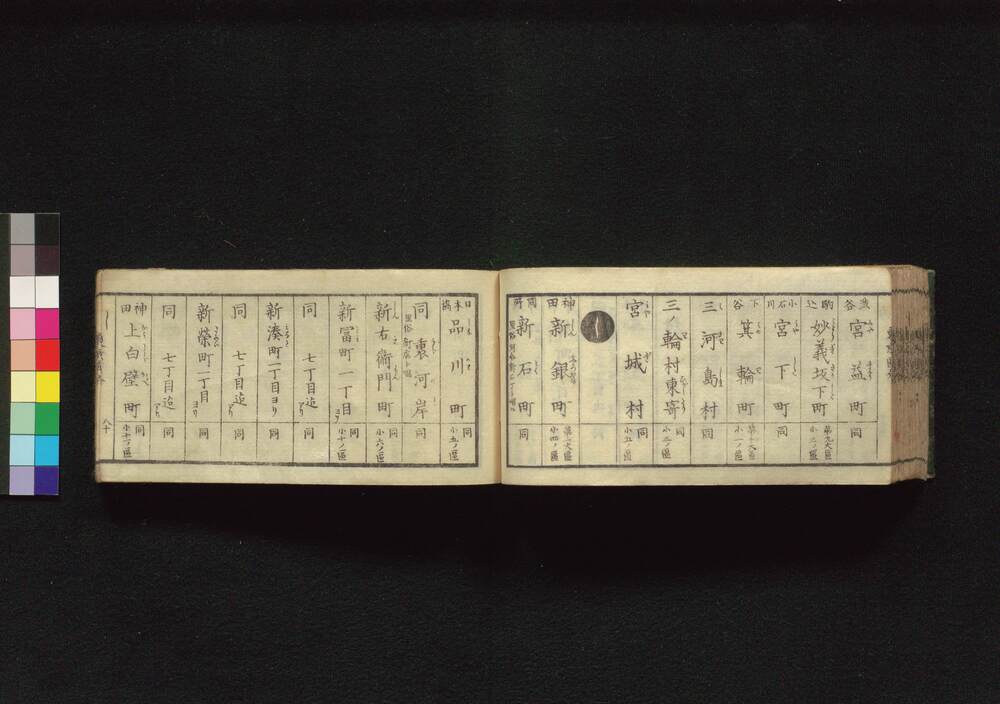 渋谷 宮益町 同
駒込 妙義坂下町 第九大區 小二ノ區
小石川 宮下町 同
下谷 箕輪町 第十大區 小一ノ區
三河島村 同
三ノ輪村東嵜 同 小二ノ區
宮城村 同 小五ノ區
神田 新銀町 第一大區 小四ノ區
新石町 同
日本橋 品川町 同 小五ノ區
同 裏河岸 同
新右衛門町 同 小六ノ區
新富町一丁目ヨリ 同 小十ノ區
同 七丁目迠 同
新湊町一丁目ヨリ 同
同 七丁目迠 同
新榮町一丁目ヨリ 同
同 七丁目迠 同
神田 上白壁町 同 小十一ノ區
八十